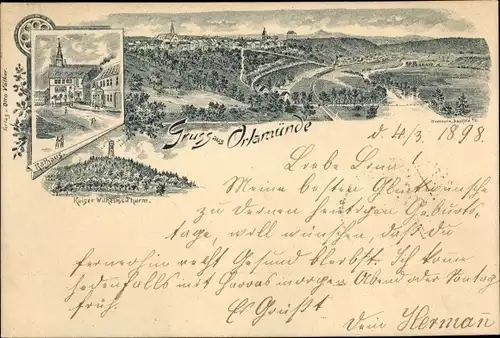 Gruss aus Orlamünde
Rathaus
Kaiser Wilhelms Thurm.
Verlag v. Otto Vötker
d 4/3 1898.
Liebe Lina!
Meine besten Glückwünsche
zu Deinem heutigen Geburts-
tage, will wünschen, daß Du
fernerhin recht Gesund bleibst. Ich kome
jedenfalls mit morgen Abend oder Sontag
früh. Es Grüßt
Dein Herman